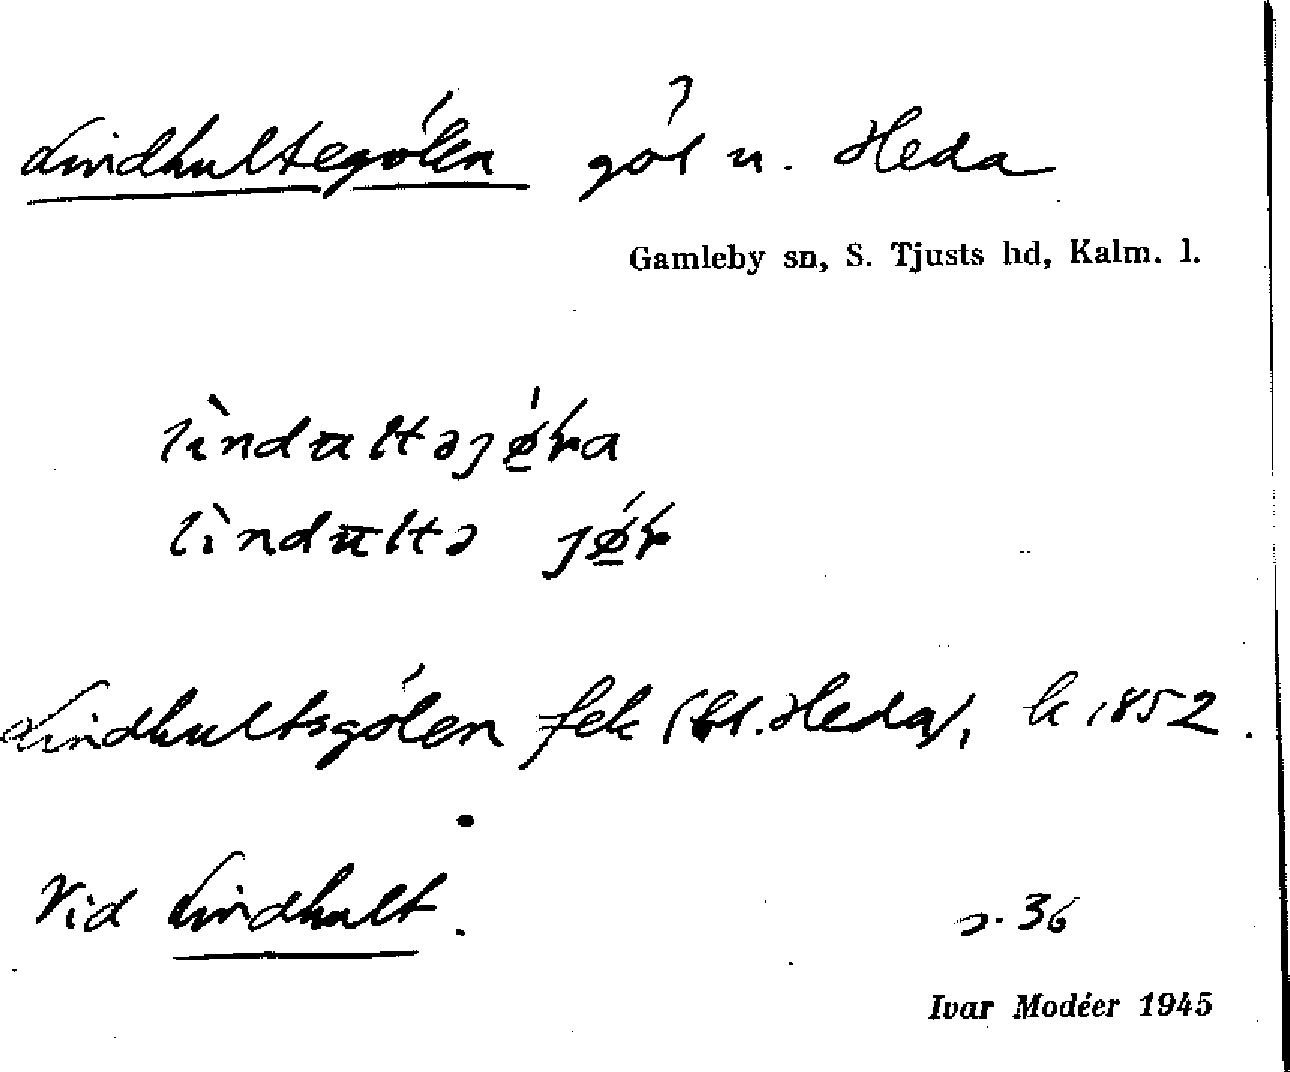 Lindhultegölen göl u. Heda
Gamleby sn, S. Tjusts hd, Kalm. l.
lìndʉltəȷǿɽa
lìndʉltə ȷǿɽ
Lindhultsgölen fek Heda), k 1852.
Vid Lindhult.
s. 36
Ivar Modéer 1945